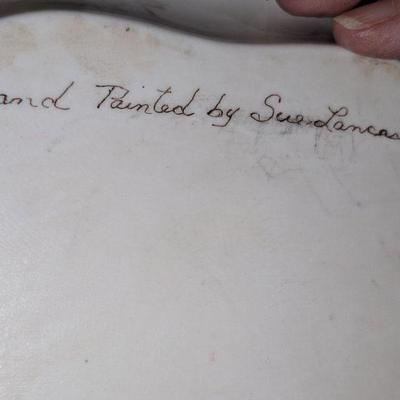 and Painted by Sue Lancas